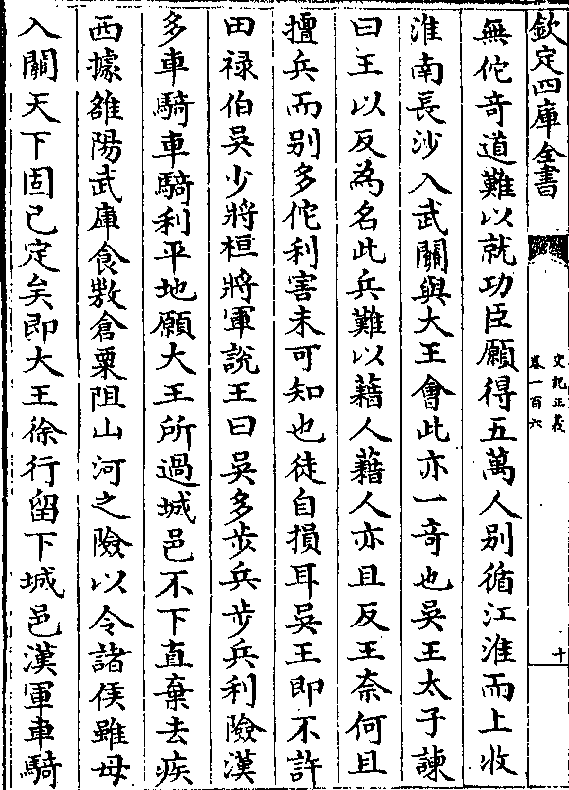 欽定四庫全書
史記正義
卷一百六
十
無佗竒道難以就功臣願得五萬人别循江淮而上收
淮南長沙入武關與大王會此亦一竒也吳王太子諫
曰王以反為名此兵難以藉人藉人亦且反王奈何且
擅兵而别多佗利害未可知也徒自損耳吳王即不許
田禄伯吳少將桓將軍說王曰吳多步兵步兵利險漢
多車騎車騎利平地願大王所過城邑不下直棄去疾
西據雒陽武庫食敖倉粟阻山河之險以令諸侯雖毋
入關天下固已定矣即大王徐行留下城邑漢軍車騎